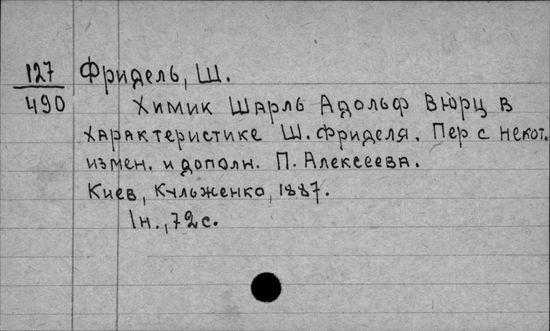 127 Фридель, Ш.
490 Химик Шарль Адольф Вюрц в
характеристике Ш. Фриделя. Пер с некот.
измен. и дополн. П. Алексеева.
Киев, Кульженко, 1887.
1н., 72 с.